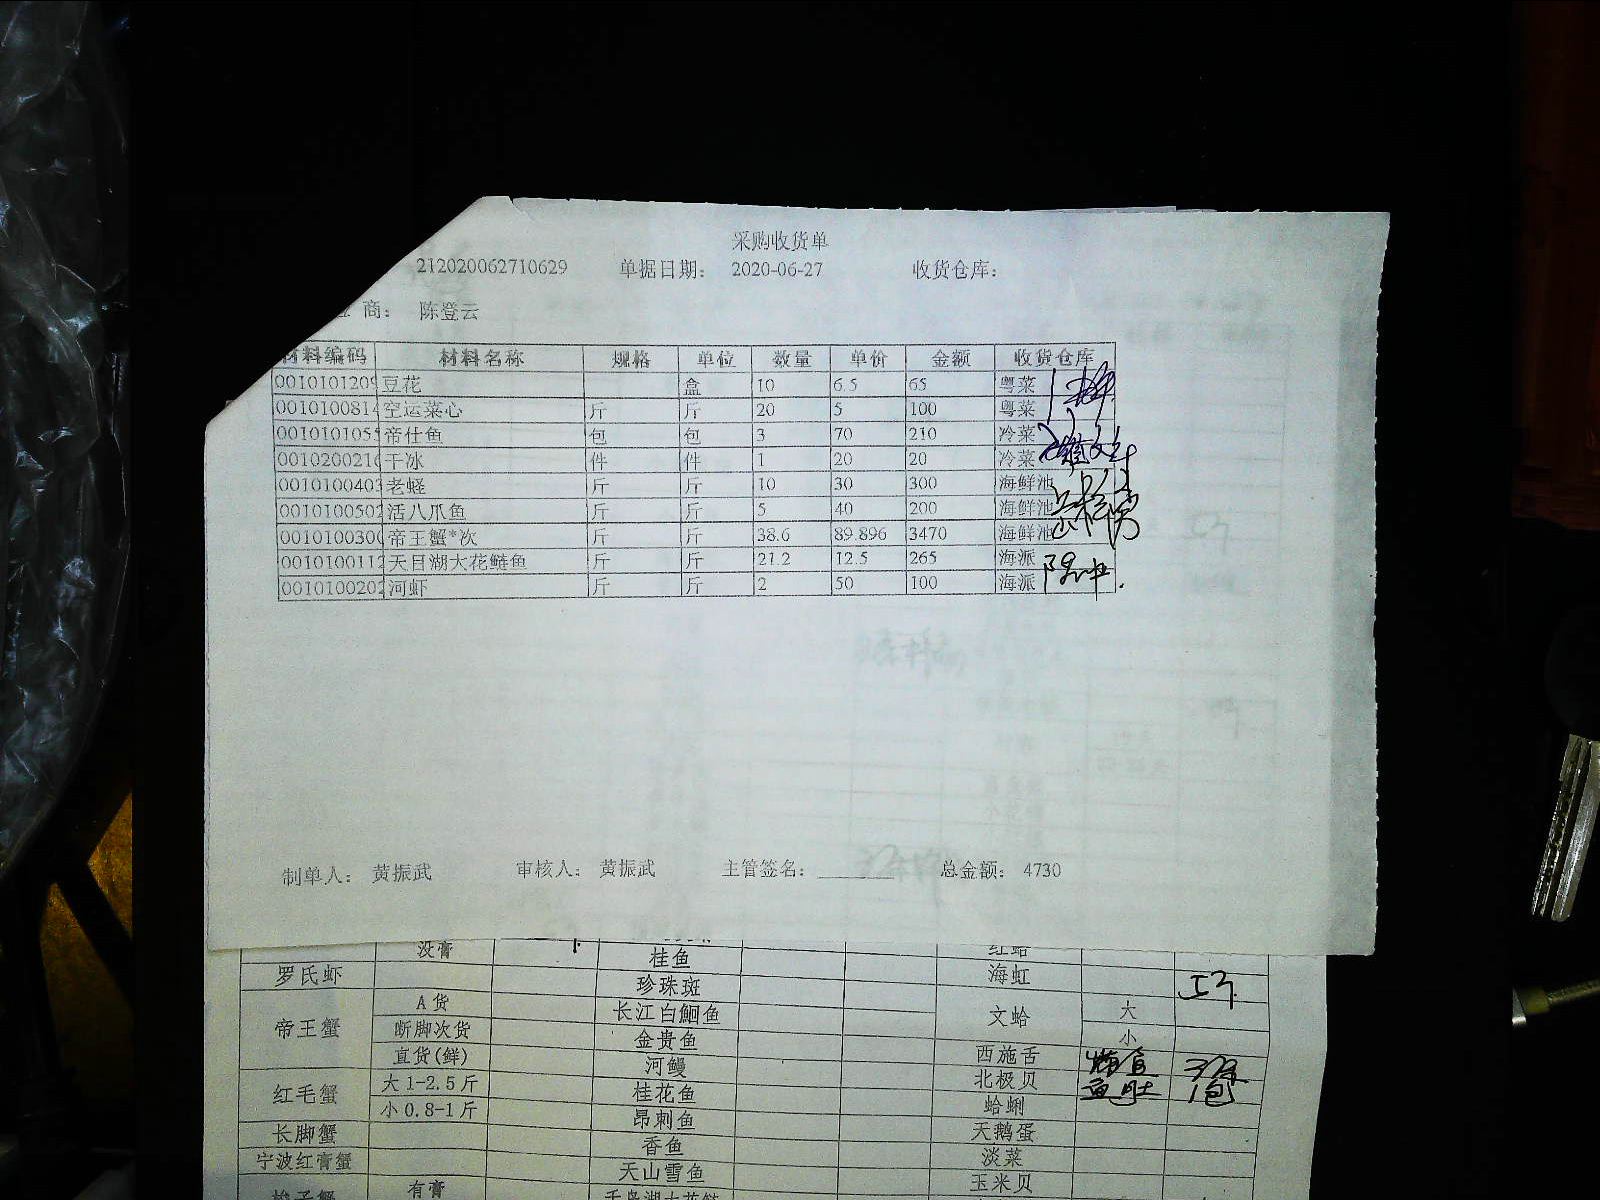 采购收货单
212020062710629 单据日期： 2020-06-27 收货仓库：
商： 陈登云
材料编码 材料名称 规格 单位 数量 单价 金额 收货仓库
0010101209 豆花 盒 10 6.5 65 粤菜
0010100814 空运菜心 斤 斤 20 5 100 粤菜
0010101055 帝仕鱼 包 包 3 70 210 冷菜
0010200210 干冰 件 件 1 20 20 冷菜
0010100403 老蛏 斤 斤 10 30 300 海鲜池
0010100502 活八爪鱼 斤 斤 5 40 200 海鲜池
0010100300 帝王蟹*次 斤 斤 38.6 89.896 3470 海鲜池
0010100112 天目湖大花鲢鱼 斤 斤 21.2 12.5 265 海派
0010100202 河虾 斤 斤 2 50 100 海派
制单人： 黄振武 审核人： 黄振武 主管签名： 总金额： 4730
没膏 桂鱼 红蛤
罗氏虾 珍珠斑 海虹
帝王蟹 A货 长江白鮰鱼 文蛤 大
断脚次货 金贵鱼 小
直货(鲜) 河鳗 西施舌
红毛蟹 大1-2.5斤 桂花鱼 北极贝
小0.8-1斤 昂刺鱼 蛤蜊
长脚蟹 香鱼 天鹅蛋
宁波红膏蟹 天山雪鱼 淡菜
有膏 玉米贝